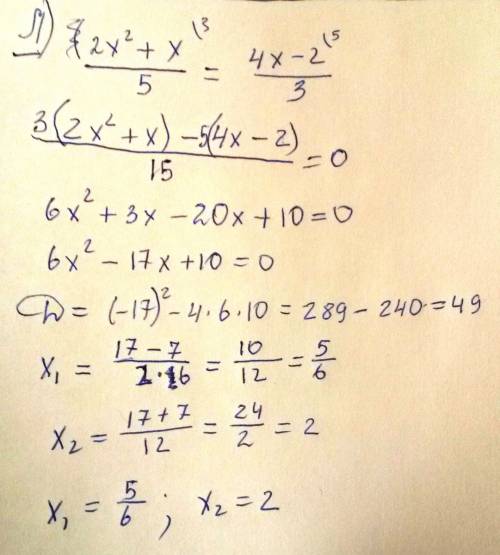 л) 2x² + x \3 / 5 = 4x - 2 \5 / 3
3(2x² + x) - 5(4x - 2) / 15 = 0
6x² + 3x - 20x + 10 = 0
6x² - 17x + 10 = 0
D = (-17)² - 4·6·10 = 289 - 240 = 49
x₁ = 17 - 7 / 2·6 = 10 / 12 = 5 / 6
x₂ = 17 + 7 / 12 = 24 / 2 = 2
x₁ = 5 / 6 ; x₂ = 2